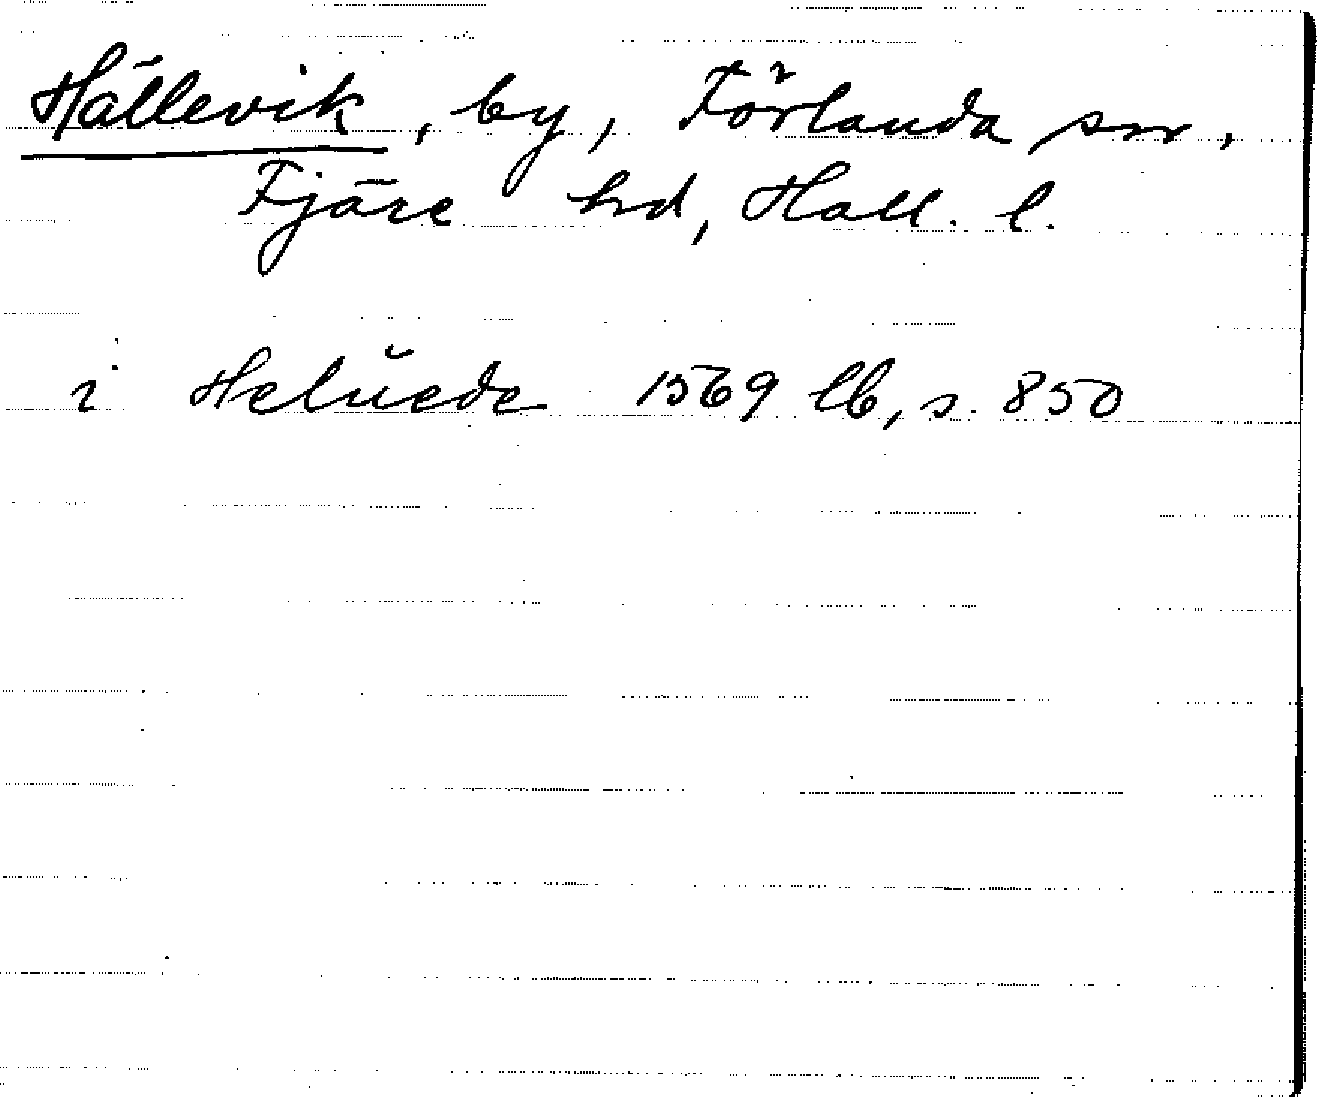 Hällevik, by, Förlanda sn,
Fjäre hd, Hall. l.
i Helŭede 1569 lb, s. 850